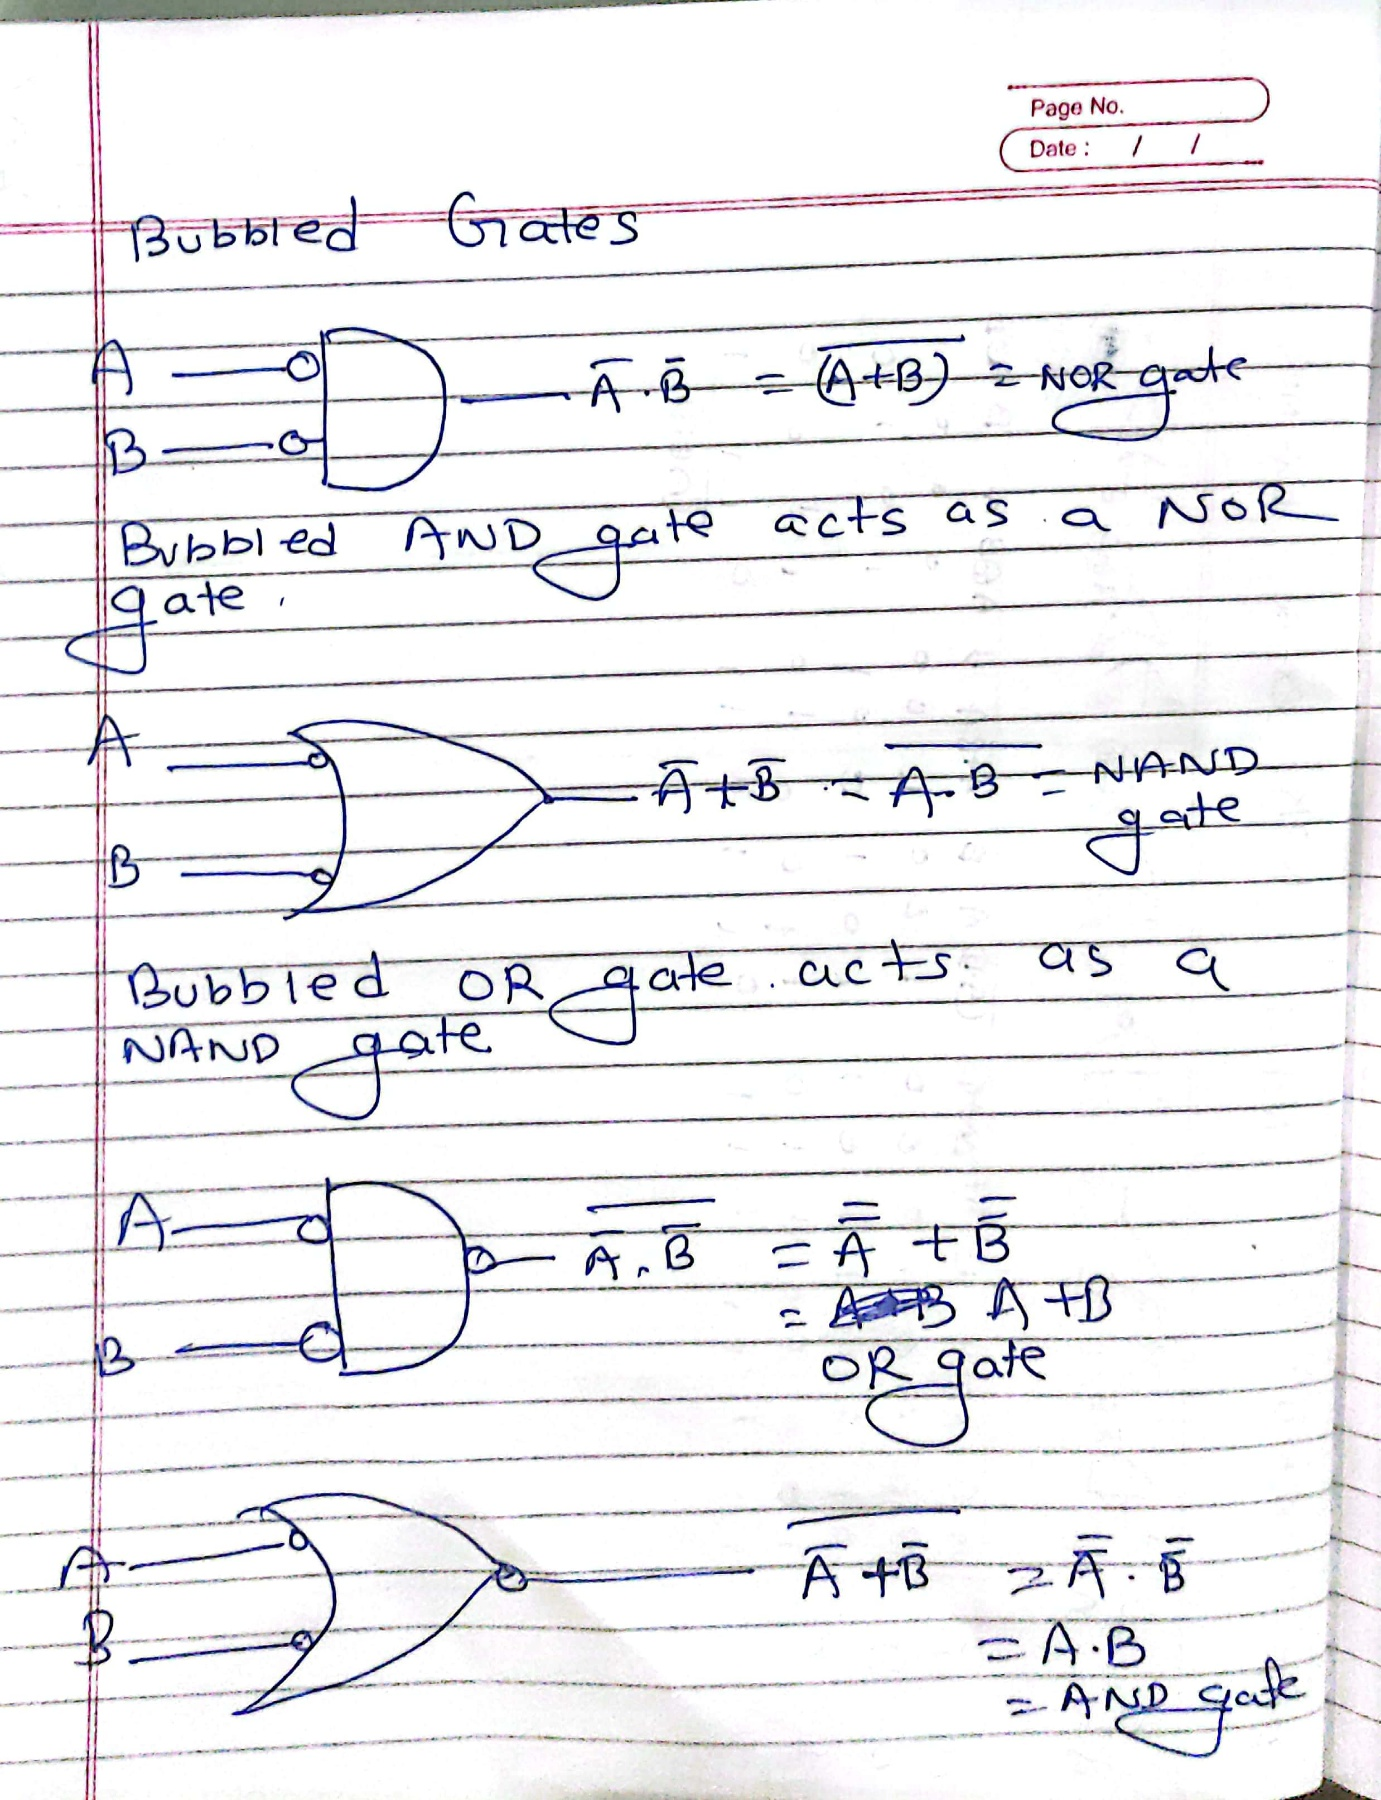 Page No.
Date : / /
Bubbled Gates
A
B
A̅ . B̅ = (A+B)̅ = NOR gate
Bubbled AND gate acts as a NOR
gate.
A
B
A̅ + B̅ = A̅.̅B̅ = NAND
gate
Bubbled OR gate acts as a
NAND gate
A
B
A̅̅ .̅ B̅̅ = A̿ + B̿
= A + B
OR gate
A
B
A̅̅ +̅ B̅̅ = A̿ . B̿
= A.B
= AND gate